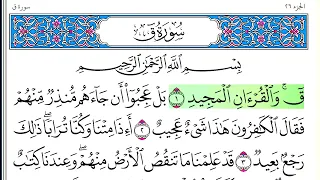 الجزء ٢٦
سورة ق
سُورَةُ قٓ
بِسْمِ اللَّهِ الرَّحْمَٰنِ الرَّحِيمِ
قٓ ۚ وَالْقُرْءَانِ الْمَجِيدِ ١ بَلْ عَجِبُوٓا۟ أَن جَآءَهُم مُّنذِرٌ مِّنْهُمْ
فَقَالَ الْكَٰفِرُونَ هَٰذَا شَىْءٌ عَجِيبٌ ٢ أَءِذَا مِتْنَا وَكُنَّا تُرَابًا ۖ ذَٰلِكَ
رَجْعٌۢ بَعِيدٌ ٣ قَدْ عَلِمْنَا مَا تَنقُصُ الْأَرْضُ مِنْهُمْ ۖ وَعِندَنَا كِتَٰبٌ